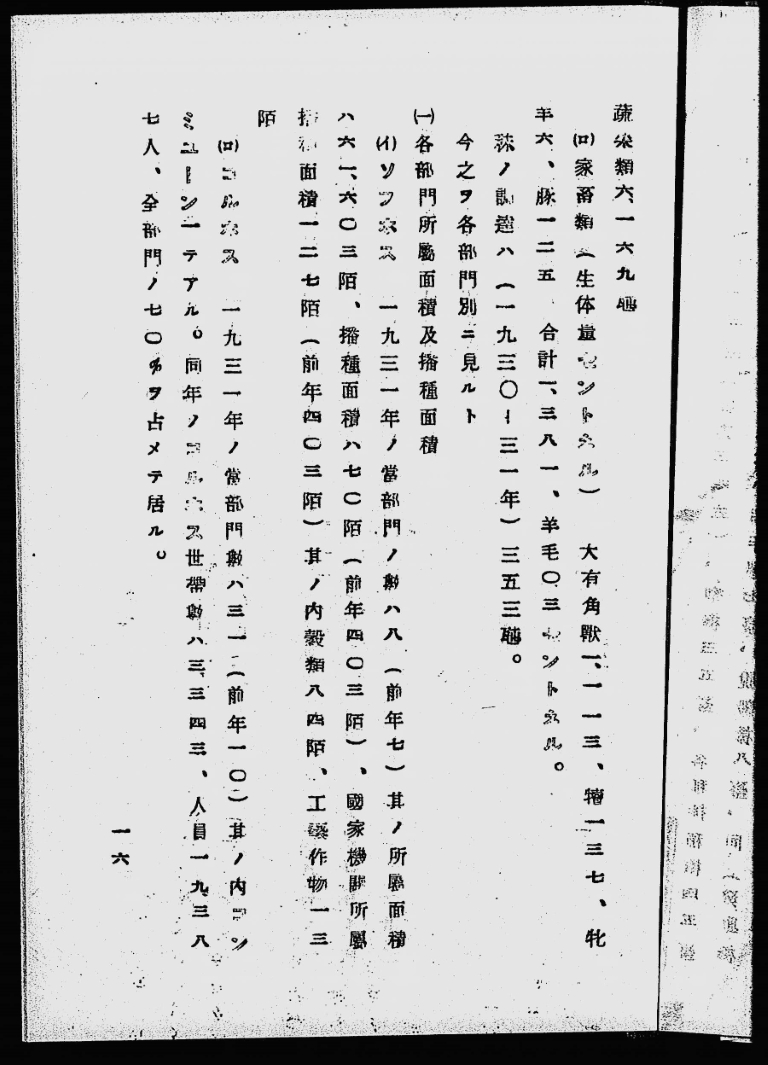 蔬菜類六、一六九瓲
(ロ)家畜類(生体量セントネル) 大有角獣一、一一三、犢一三七、牝
羊六、豚一二五 合計一、三八一、羊毛〇三セントネル。
ノ調達ハ(一九三〇ー三一年)三五三瓲。
今之ヲ各部門別ニ見ルト
(一)各部門所屬面積及播種面積
(イ)ソフホス 一九三一年ノ當部門ノ數ハ八(前年七)其ノ所屬面積
ハ六一、六〇三陌、播種面積ハ七〇陌(前年四〇三陌)、國家機關所屬
播種面積一二七陌(前年四〇三陌)其ノ内穀類八四陌、工藝作物一三
陌
(ロ)コルホス 一九三一年ノ當部門數ハ三一(前年一〇)其ノ内コン
ミユーン一テアル。同年ノコルホス世帶數ハ三、三四三、人員一九三八
七人、全部門ノ七〇%ヲ占メテ居ル。
一六